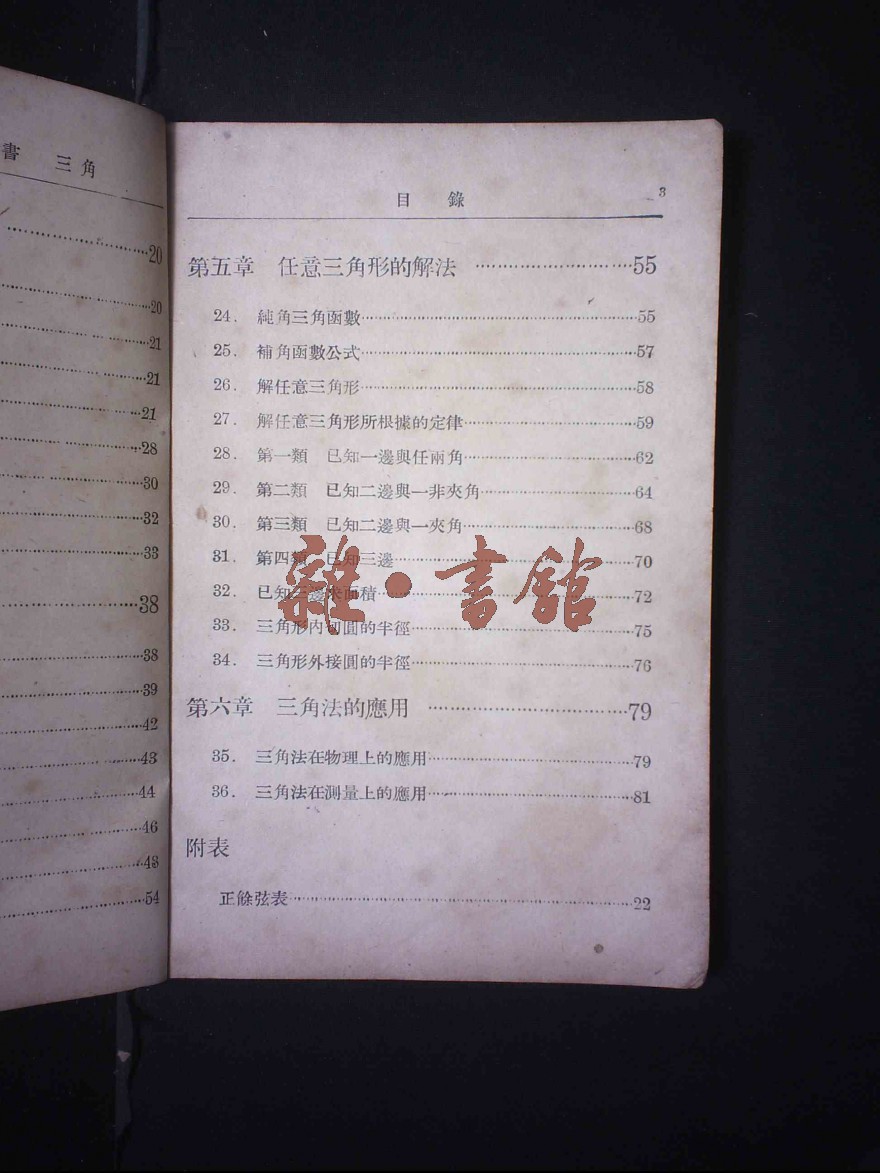 書 三角
20
20
21
21
21
28
30
32
33
38
38
39
42
43
44
46
48
54
目錄 3
第五章 任意三角形的解法 55
24. 鈍角三角函數 55
25. 補角函數公式 57
26. 解任意三角形 58
27. 解任意三角形所根據的定律 59
28. 第一類 已知一邊與任兩角 62
29. 第二類 已知二邊與一非夾角 64
30. 第三類 已知二邊與一夾角 68
31. 第四類 已知三邊 70
32. 已知三邊求面積 72
33. 三角形內切圓的半徑 75
34. 三角形外接圓的半徑 76
第六章 三角法的應用 79
35. 三角法在物理上的應用 79
36. 三角法在測量上的應用 81
附表
正餘弦表 22
雜·書館